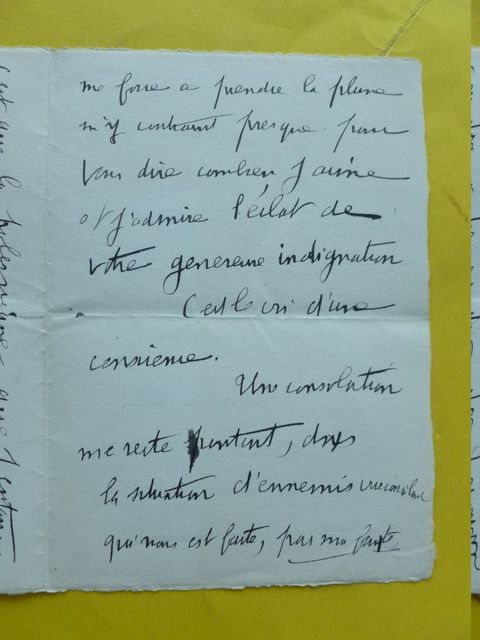 me force a prendre la plume
m'y contraint presque pour
vous dire combien j'aime
et j'admire l'éclat de
votre genereuse indignation
C'est le cri d'une
conscience.
Une consolation
me reste pourtant, dans
la situation d'ennemis irréconciliables
qui nous est faite, par ma faute.
c'est que la polémique que j'entame